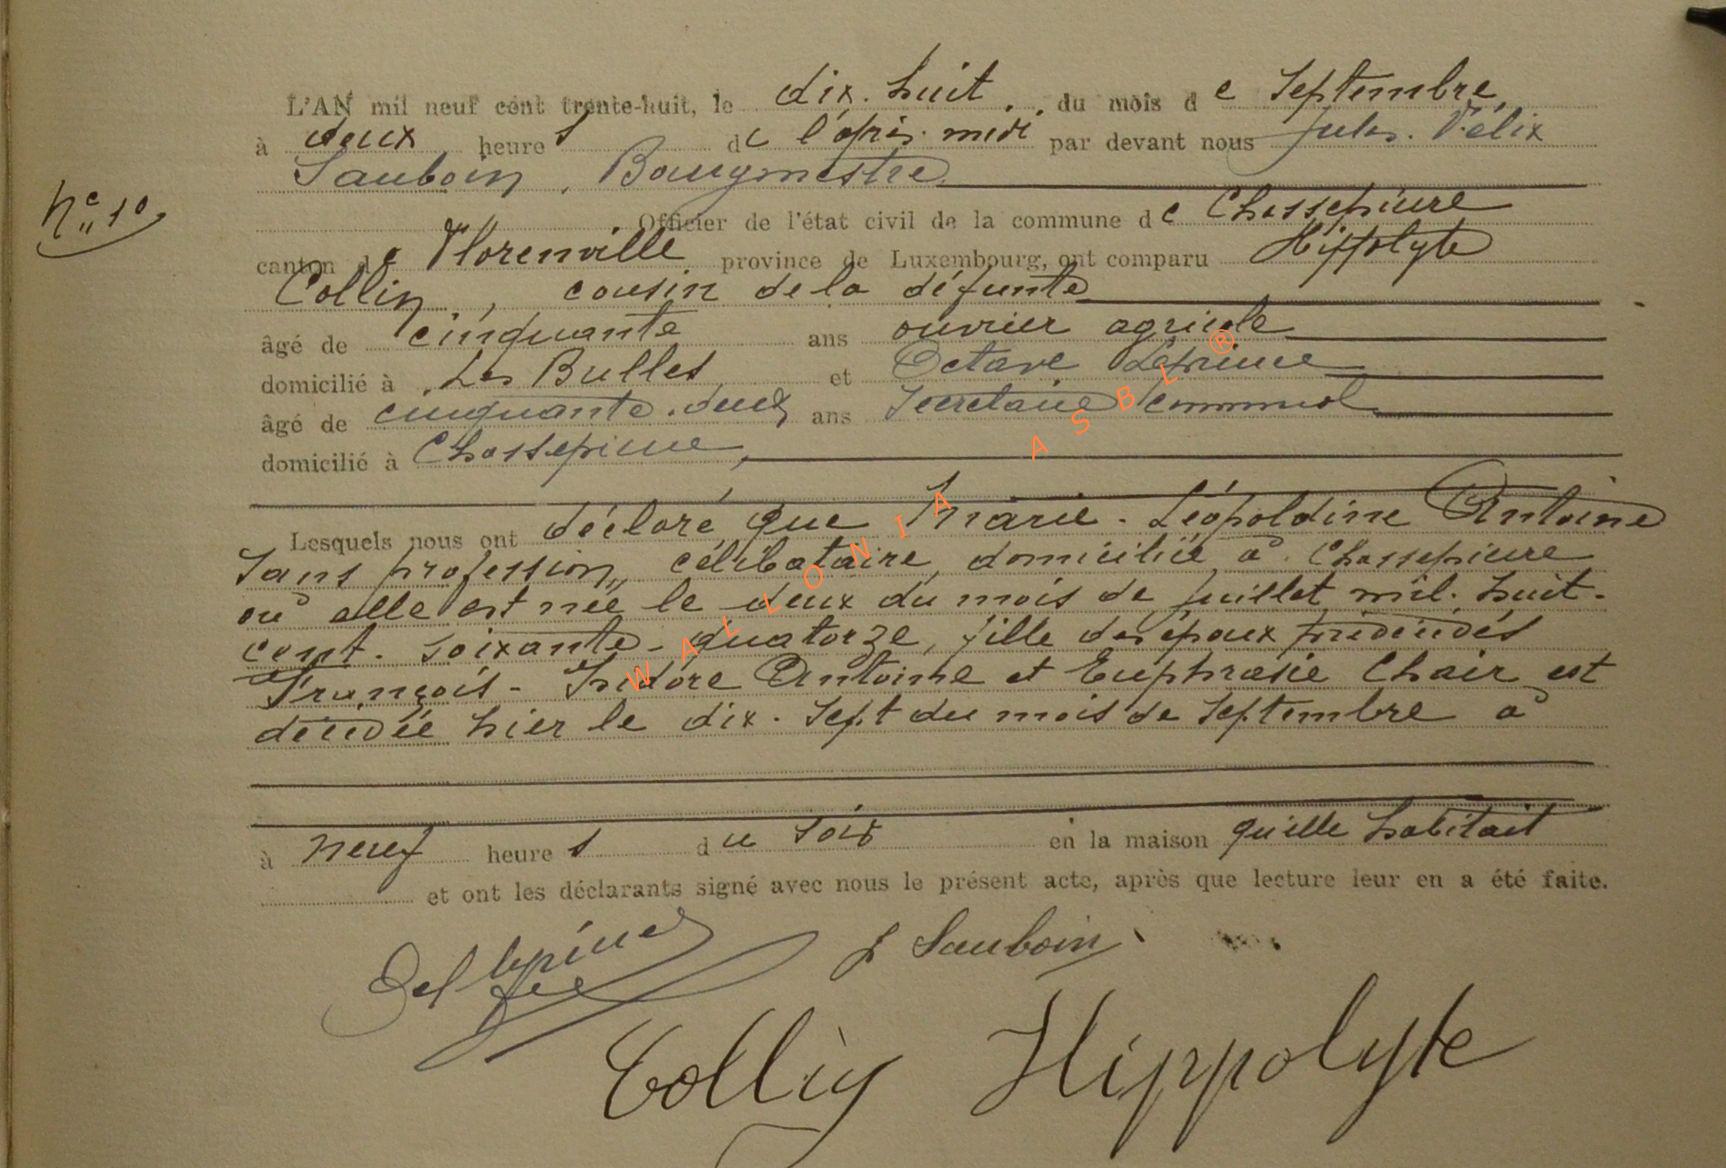 L'AN mil neuf cent trente-huit, le dix-huit du mois de Septembre,
à deux heures de l'après-midi par devant nous Jules-Félix
Sauboin, Bourgmestre
Nº 10
Officier de l'état civil de la commune de Chassepierre
canton de Florenville province de Luxembourg, ont comparu Hippolyte
Collin, cousin de la défunte
âgé de cinquante ans ouvrier agricole
domicilié à Les Bulles, et Octave Lépine
âgé de cinquante-deux ans Secrétaire communal
domicilié à Chassepierre,
Lesquels nous ont déclaré que Marie-Léopoldine Antoine
Sans profession, célibataire, domiciliée à Chassepierre
où elle est née le deux du mois de Juillet mil-huit-
cent-soixante-quatorze, fille des époux prédécédés
François-Isidore Antoine et Euphrasie Chair est
décédée hier le dix-sept du mois de Septembre à
à neuf heures du soir en la maison qu'elle habitait
et ont les déclarants signé avec nous le présent acte, après que lecture leur en a été faite.
J Sauboin
Collin Hippolyte
WALLONIA ASBL ®